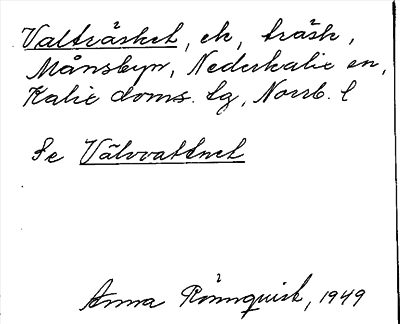 Valträsket, ek, träsk,
Månsbyn, Nederkalix sn,
Kalix doms. lg, Norrb. l
Se Välvvattnet
Anna Rönnquist, 1949